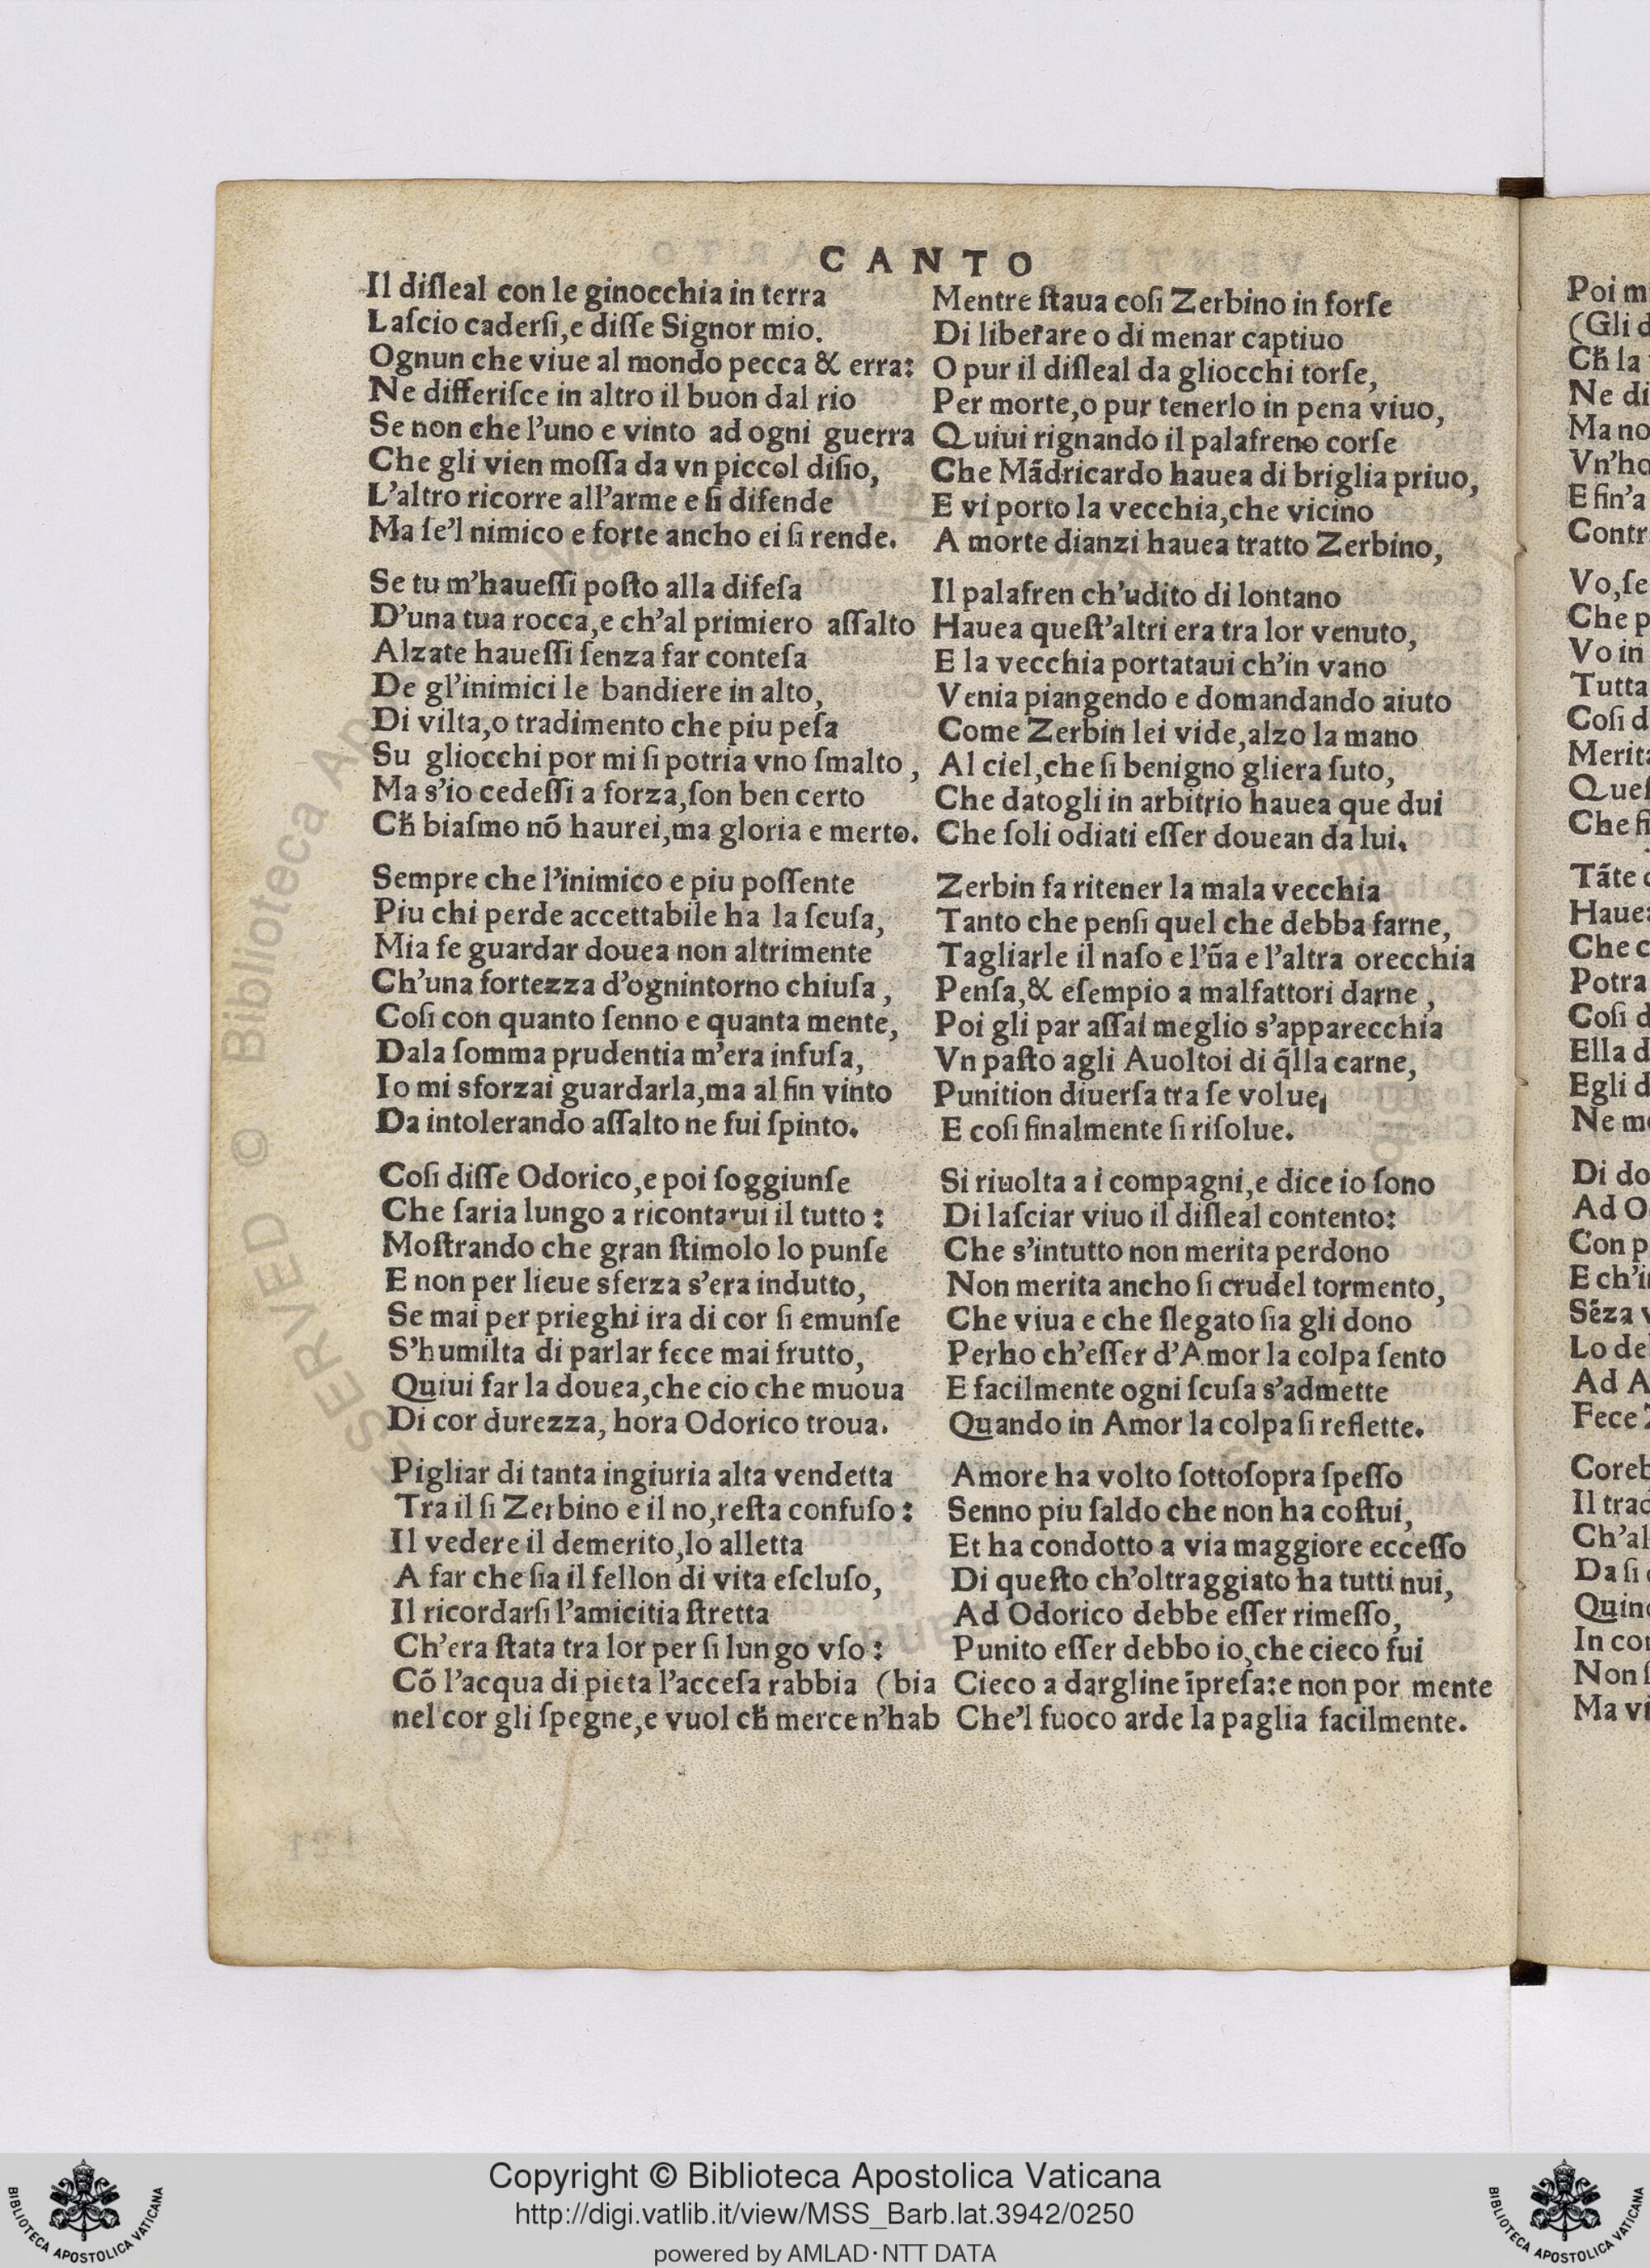 CANTO
Il diſleal con le ginocchia in terra
Laſcio caderſi,e diſſe Signor mio.
Ognun che viue al mondo pecca & erra:
Ne differiſce in altro il buon dal rio
Se non che l'uno e vinto ad ogni guerra
Che gli vien moſſa da vn piccol diſio,
L'altro ricorre all'arme e ſi difende
Ma ſe'l nimico e forte ancho ei ſi rende.
Se tu m'haueſſi poſto alla difeſa
D'una tua rocca,e ch'al primiero aſſalto
Alzate haueſſi ſenza far conteſa
De gl'inimici le bandiere in alto,
Di vilta,o tradimento che piu peſa
Su gliocchi por mi ſi potria vno ſmalto,
Ma s'io cedeſſi a forza,ſon ben certo
Ch̃ biaſmo nõ haurei,ma gloria e merto.
Sempre che l'inimico e piu poſſente
Piu chi perde accettabile ha la ſcuſa,
Mia fe guardar douea non altrimente
Ch'una fortezza d'ognintorno chiuſa,
Coſi con quanto ſenno e quanta mente,
Dala ſomma prudentia m'era infuſa,
Io mi sforzai guardarla,ma al fin vinto
Da intolerando aſſalto ne fui ſpinto.
Coſi diſſe Odorico,e poi ſoggiunſe
Che ſaria lungo a ricontarui il tutto:
Moſtrando che gran ſtimolo lo punſe
E non per lieue sferza s'era indutto,
Se mai per prieghi ira di cor ſi emunſe
S'humilta di parlar fece mai frutto,
Quiui far la douea,che cio che muoua
Di cor durezza, hora Odorico troua.
Pigliar di tanta ingiuria alta vendetta
Tra il ſi Zerbino e il no,reſta confuſo:
Il vedere il demerito,lo alletta
A far che ſia il fellon di vita eſcluſo,
Il ricordarſi l'amicitia ſtretta
Ch'era ſtata tra lor per ſi lungo vſo:
Cõ l'acqua di pieta l'acceſa rabbia (bia
nel cor gli ſpegne,e vuol ch̃ merce n'hab
Mentre ſtaua coſi Zerbino in forſe
Di liberare o di menar captiuo
O pur il diſleal da gliocchi torſe,
Per morte,o pur tenerlo in pena viuo,
Quiui rignando il palafreno corſe
Che Mãdricardo hauea di briglia priuo,
E vi porto la vecchia,che vicino
A morte dianzi hauea tratto Zerbino,
Il palafren ch'udito di lontano
Hauea queſt'altri era tra lor venuto,
E la vecchia portataui ch'in vano
Venia piangendo e domandando aiuto
Come Zerbin lei vide,alzo la mano
Al ciel,che ſi benigno gliera ſuto,
Che datogli in arbitrio hauea que dui
Che ſoli odiati eſſer douean da lui.
Zerbin fa ritener la mala vecchia
Tanto che penſi quel che debba farne,
Tagliarle il naſo e l'ũa e l'altra orecchia
Penſa,& eſempio a malfattori darne,
Poi gli par aſſai meglio s'apparecchia
Vn paſto agli Auoltoi di q̃lla carne,
Punition diuerſa tra ſe volue,
E coſi finalmente ſi riſolue.
Si riuolta a i compagni,e dice io ſono
Di laſciar viuo il diſleal contento:
Che s'intutto non merita perdono
Non merita ancho ſi crudel tormento,
Che viua e che ſlegato ſia gli dono
Perho ch'eſſer d'Amor la colpa ſento
E facilmente ogni ſcuſa s'admette
Quando in Amor la colpa ſi reflette.
Amore ha volto ſottoſopra ſpeſſo
Senno piu ſaldo che non ha coſtui,
Et ha condotto a via maggiore ecceſſo
Di queſto ch'oltraggiato ha tutti nui,
Ad Odorico debbe eſſer rimeſſo,
Punito eſſer debbo io,che cieco fui
Cieco a dargline ĩpreſa:e non por mente
Che'l fuoco arde la paglia facilmente.
Poi m
(Gli d
Ch̃ la
Ne di
Ma no
Vn'ho
E fin'a
Contr
Vo,ſe
Che p
Vo in
Tutta
Coſi d
Merita
Queſ
Che fi
Tãte
Hauea
Che c
Potra
Coſi d
Ella d
Egli d
Ne mo
Di do
Ad O
Con p
E ch'i
Sẽza v
Lo de
Ad A
Fece
Coreb
Il trad
Ch'al
Da ſi
Quin
In co
Non
Ma vi
Copyright © Biblioteca Apostolica Vaticana
http://digi.vatlib.it/view/MSS_Barb.lat.3942/0250
powered by AMLAD·NTT DATA
BIBLIOTECA APOSTOLICA VATICANA
BIBLIOTECA APOSTOLICA VATICANA